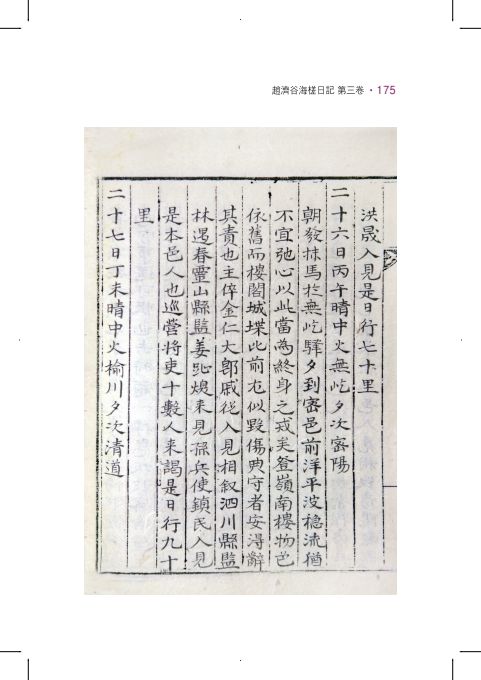 趙濟谷海槎日記 第三卷 • 175
洪晟入見是日行七十里
二十六日丙午晴中火無屹夕次密陽
朝發秣馬於無屹驛夕到密邑前洋平波穩流猶
不宜弛心以此當為終身之戒矣登嶺南樓物色
依舊而樓閣城堞比前尤似毀傷典守者安淂辭
其責也主倅金仁大郞戚從入見相叙泗川縣監
林遇春靈山縣監姜 煥來見孫兵使鎮民入見
是本邑人也巡營將吏十數人来謁是日行九十
里
二十七日丁未晴中火楡川夕次清道